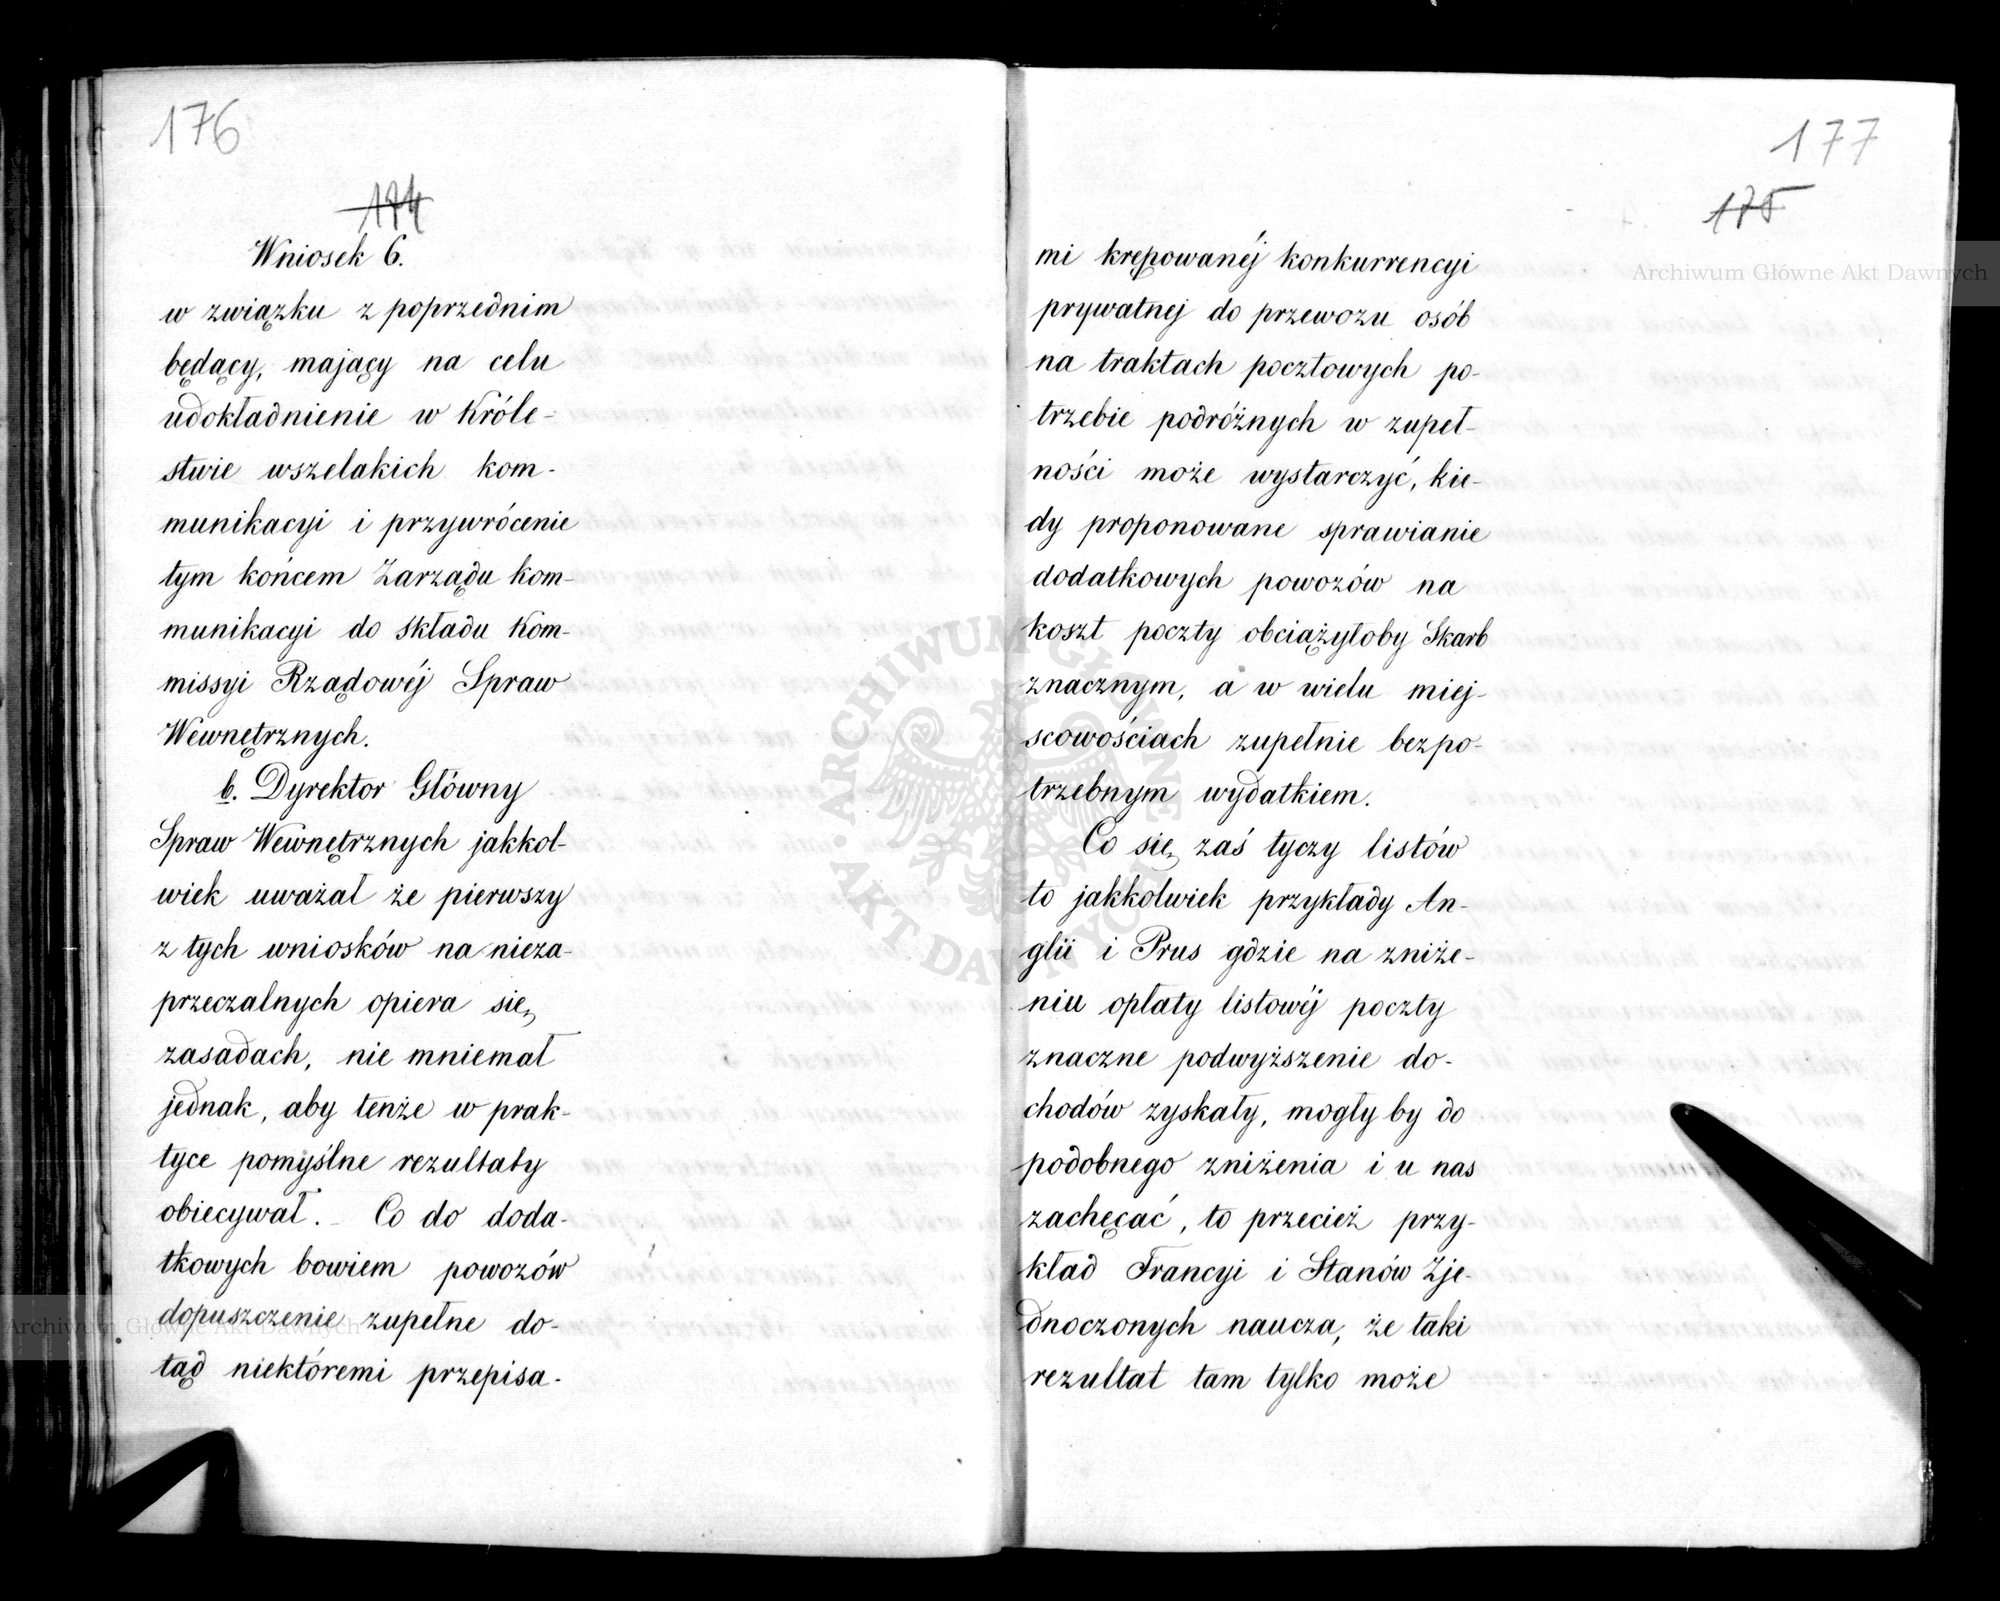 176
174
Wniosek 6.
w związku z poprzednim
będący, mający na celu
udokładnienie w Króle-
stwie wszelakich kom-
munikacyi i przywrócenie
tym końcem Zarządu kom-
munikacyi do składu Kom-
missyi Rządowéj Spraw
Wewnętrznych.
b. Dyrektor Główny
Spraw Wewnętrznych jakkol-
wiek uważał że pierwszy
z tych wniosków na nieza-
przeczalnych opiera się
zasadach, nie mniemał
jednak, aby tenże w prak-
tyce pomyślne rezultaty
obiecywał. Co do doda-
tkowych bowiem powozów
dopuszczenie zupełne do-
tąd niektóremi przepisa-
177
175
mi krępowanéj konkurrencyi
prywatnej do przewozu osób
na traktach pocztowych po-
trzebie podróżnych w zupeł-
ności może wystarczyć, kie-
dy proponowane sprawianie
dodatkowych powozów na
koszt poczty obciążyłoby Skarb
znacznym, a w wielu miej-
scowościach zupełnie bezpo-
trzebnym wydatkiem.
Co się zaś tyczy listów
to jakkolwiek przykłady An-
glii i Prus gdzie na zniże-
niu opłaty listowéj poczty
znaczne podwyższenie do-
chodów zyskały, mogły by do
podobnego zniżenia i u nas
zachęcać, to przecież przy-
kład Francyi i Stanów Zje-
dnoczonych naucza, że taki
rezultat tam tylko może
Archiwum Główne Akt Dawnych
Archiwum Główne Akt Dawnych
ARCHIWUM GŁÓWNE AKT DAWNYCH